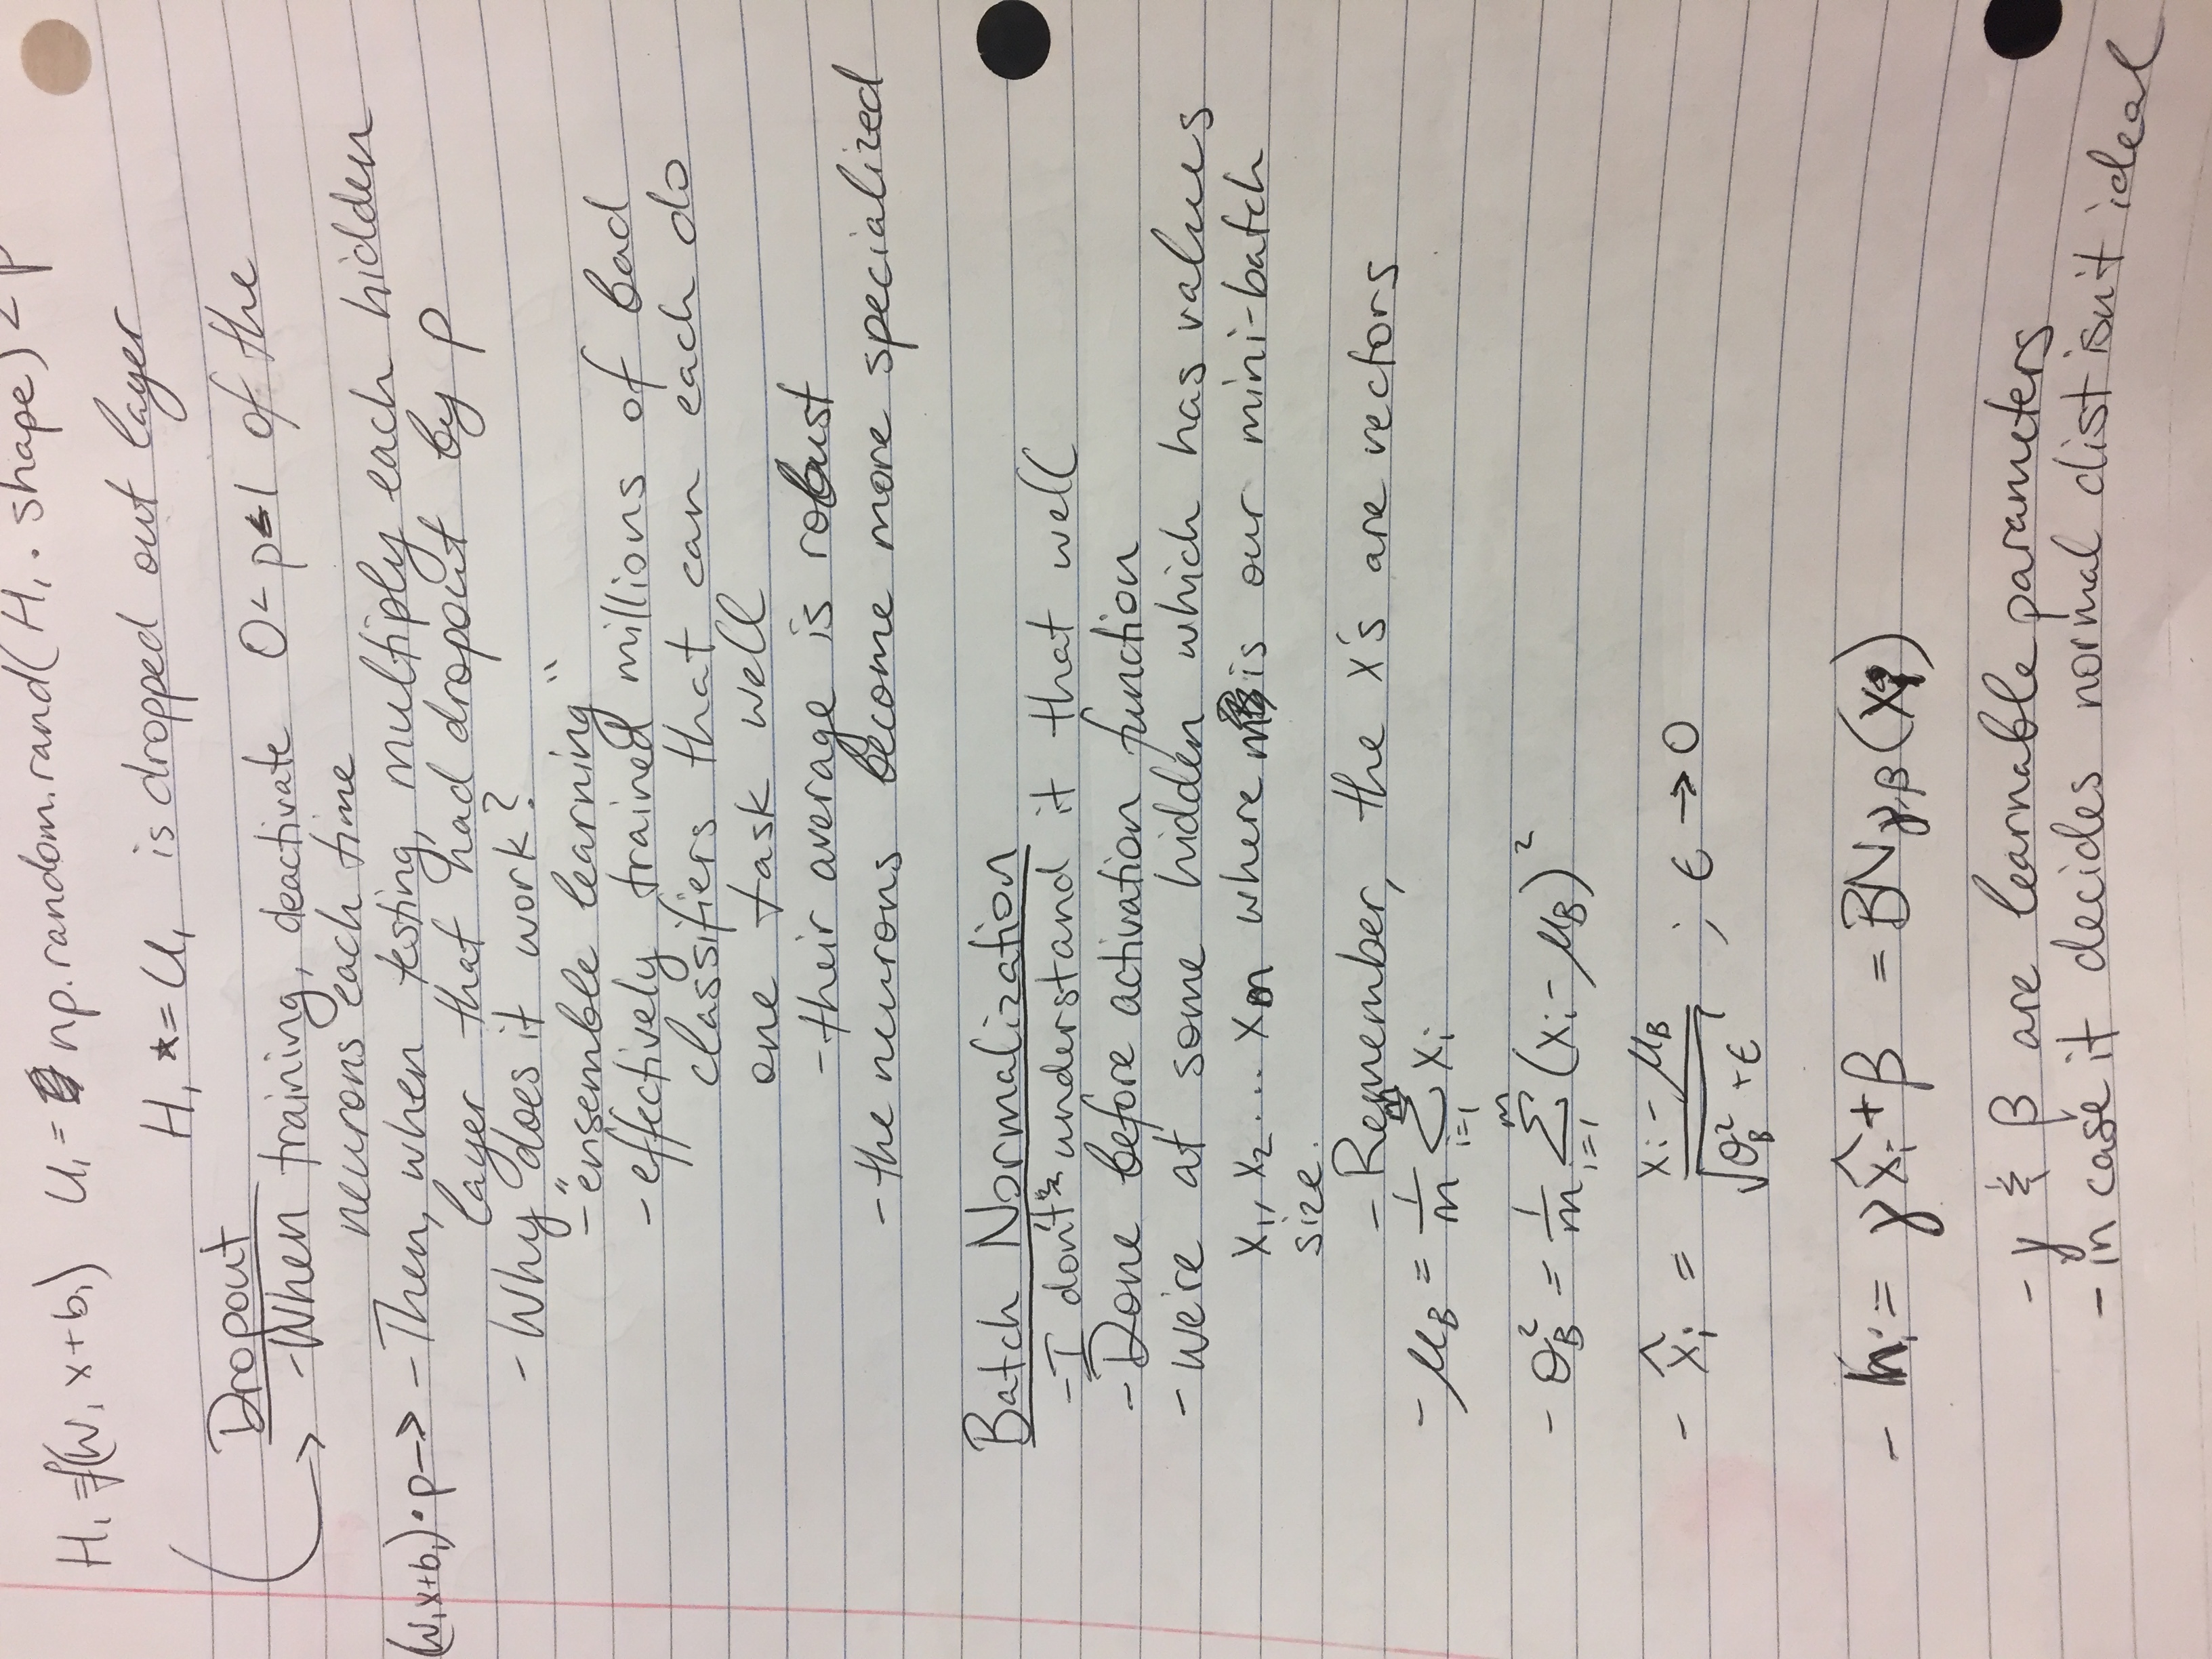 H₁ = f(W₁ x + b₁) U₁ = np.random.rand(H₁.shape) < p
H₁ *= U₁ is dropped out layer
Dropout
→ - When training, deactivate 0 < p < 1 of the
neurons each time
(W₁x+b₁)·p → - Then, when testing, multiply each hidden
layer that had dropout by p
- Why does it work?
- "ensemble learning"
- effectively trained millions of bad
classifiers that can each do
one task well
- their average is robust
- the neurons become more specialized
Batch Normalization
- I don't understand it that well
- Done before activation function
- we're at some hidden which has values
x₁, x₂ ... xm where m is our mini-batch
size.
- Remember, the x's are vectors
- μ_B = 1/m Σ_{i=1}^{m} x_i
- θ_B² = 1/m Σ_{i=1}^{m} (x_i - μ_B)²
- x̂_i = (x_i - μ_B) / √(θ_B² + ϵ) ; ϵ → 0
- h_i = γx̂_i + β = BN_{γ,β}(x_i)
- γ & β are learnable parameters
- in case it decides normal dist isn't ideal